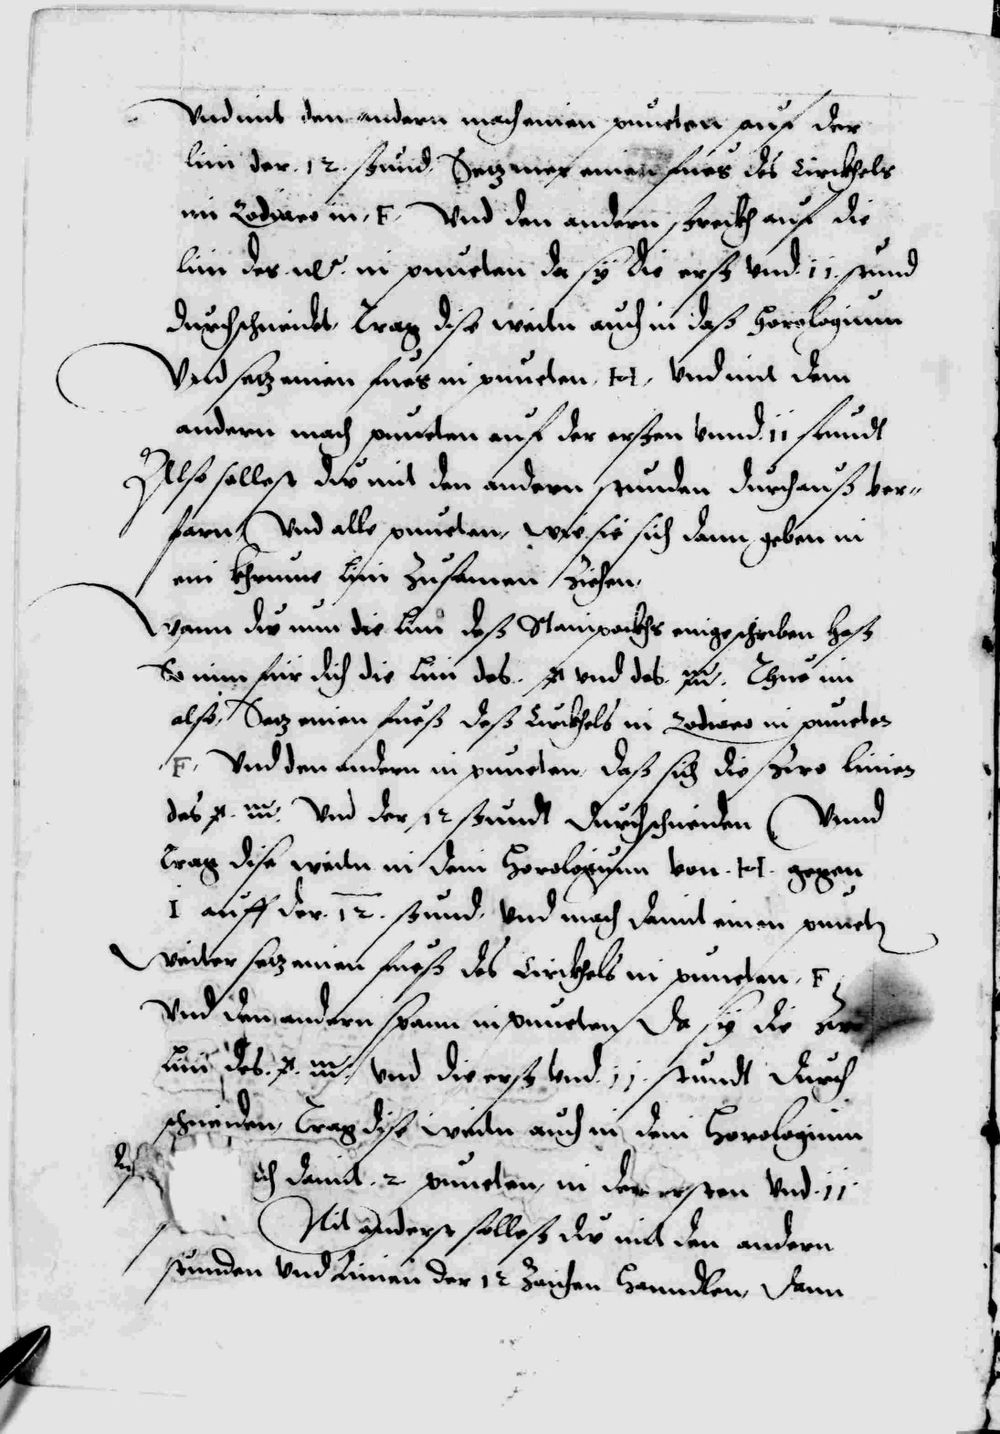 Vnd mit den andern mach einen puncten auf der
lini der .12. stund. Setz mer einen fues des Circkhels
im Zodiaco in .F. Vnd den andern streckh auf die
lini des in puncten da sy die erst vnd .11. stund
durchschneidet, Trag dise weiten auch in daß Horologium
Vnd setz einen fues in puncten .H. vnd mit dem
andern mach puncten auf der ersten vnnd .11 stundt
Also sollest du mit den andern stunden durchauß ver=
farn, Vnd alle puncten, wie sie sich dann geben in
ein khrume lini zusamen ziehen,
Wann du nun die lini deß Stainpockhs eingeschriben hast
So nim für dich die lini des . ♐ vnd des . ♒. Thue im
also, Setz einen fueß deß Circkhels in Zodiaco in puncten
.F. Vnd den andern in puncten, daß sich die zwo linien
des ♐. ♒. Vnd der 12 stundt durchschneiden (Vnnd
Trag dise weiten in dein Horologium von .H. gegen
I auff der .12. stund, vnd mach damit einen punct
Weiter setz einen fueß des Circkhels in puncten .F.
Vnd den andern spann in puncten Da sy die zwo
Lini des .♐. ♒. vnd die erst vnd .11. stundt durch
schneiden, Trag dise weiten auch in dein Horologium
ch damit .2. puncten, in der ersten vnd .11.
Nit anderst sollest du mit den andern
stunden vnd Linien der 12 Zaichen handlen, Dann